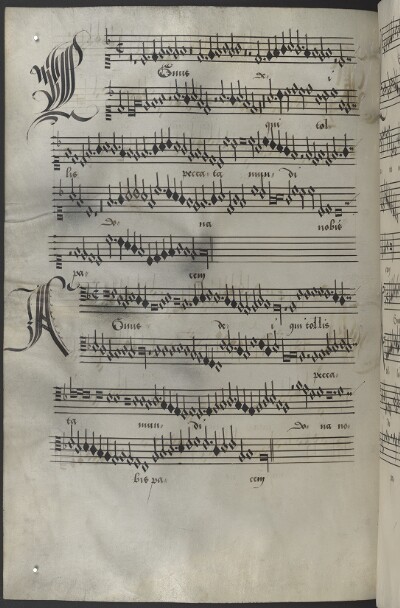 Gnus de i
qui tol
lis pecca ta mun di
do na nobis
pa cem
A Gnus de i qui tollis
pecca
ta mun di do na no
bis pa cem